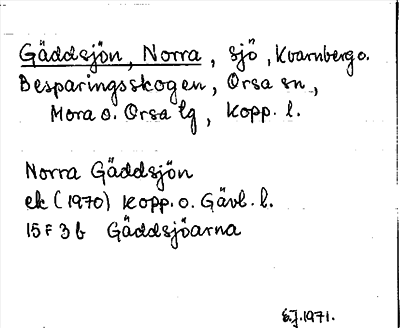 Gäddsjön, Norra, sjö, Kvarnberg o.
Besparingsskogen, Orsa sn.,
Mora o. Orsa lg, Kopp. l.
Norra Gäddsjön
ek (1970) Kopp. o. Gävl. l.
15 F 3 b Gäddsjöarna
S.J. 1971.